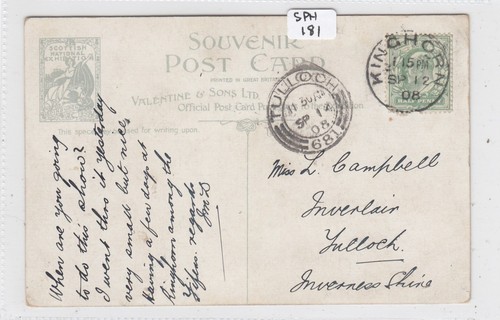 SPH
181
SCOTTISH
NATIONAL
EXHIBITION
SOUVENIR
POST CARD
PRINTED IN GREAT BRITAIN
VALENTINE & SONS LTD
Official Post Card
This space
KINGHORN
1 15 PM
SP 12
08
TULLOCH
SP
08
681
When are you going
to do this show?
I went thro it yesterday
very small but nice,
Having a few days at
Kinghorn among the
regards
Miss L. Campbell
Inverlair
Tulloch.
Inverness Shire